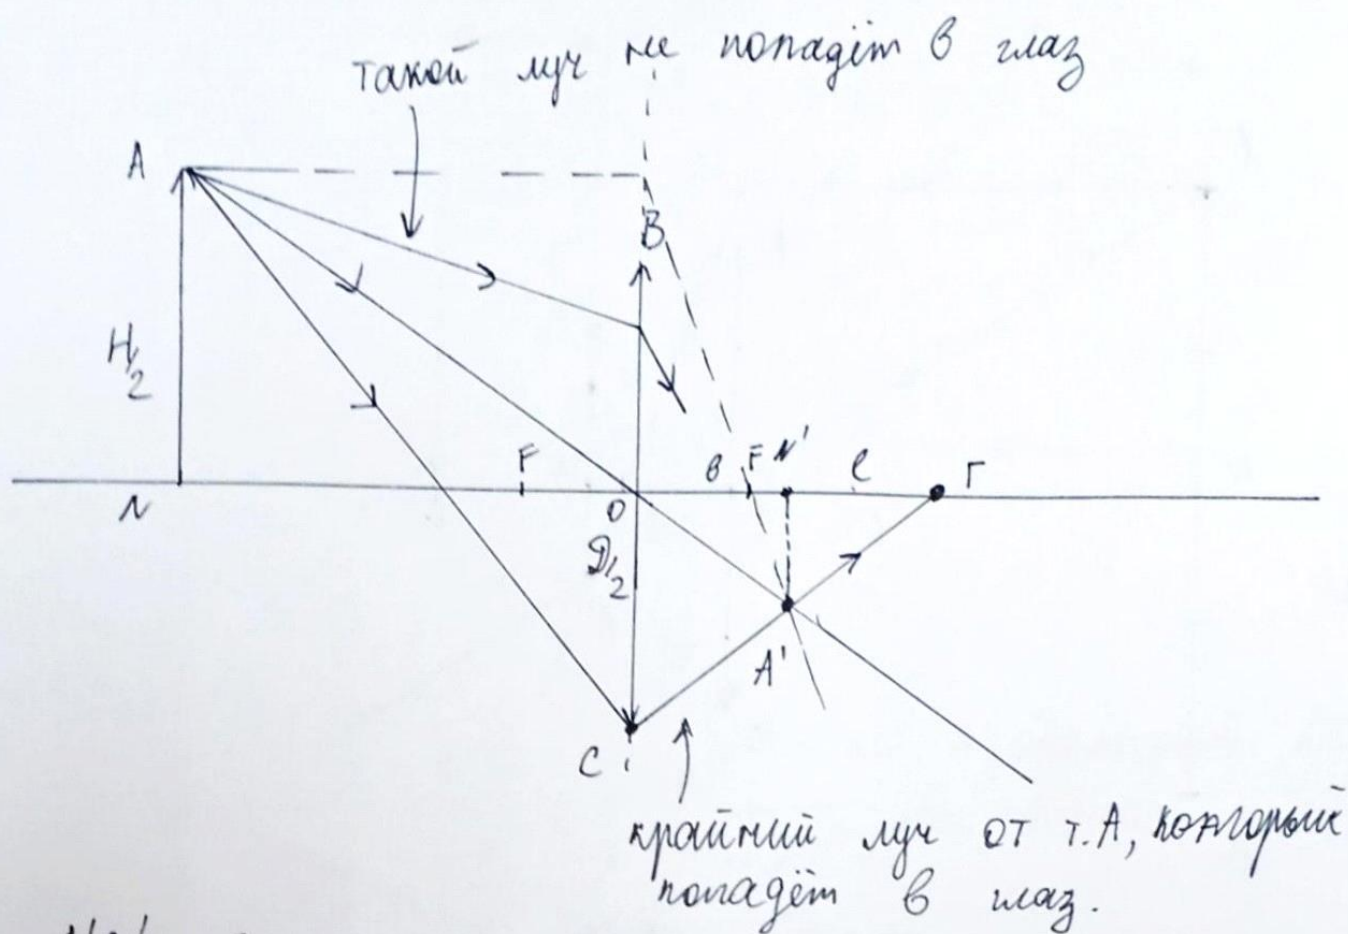 такой луч не попадёт в глаз
A
B
H/2
F
в F N' l Г
N
O
D/2
A'
C
крайний луч от т.А, который
попадёт в глаз.